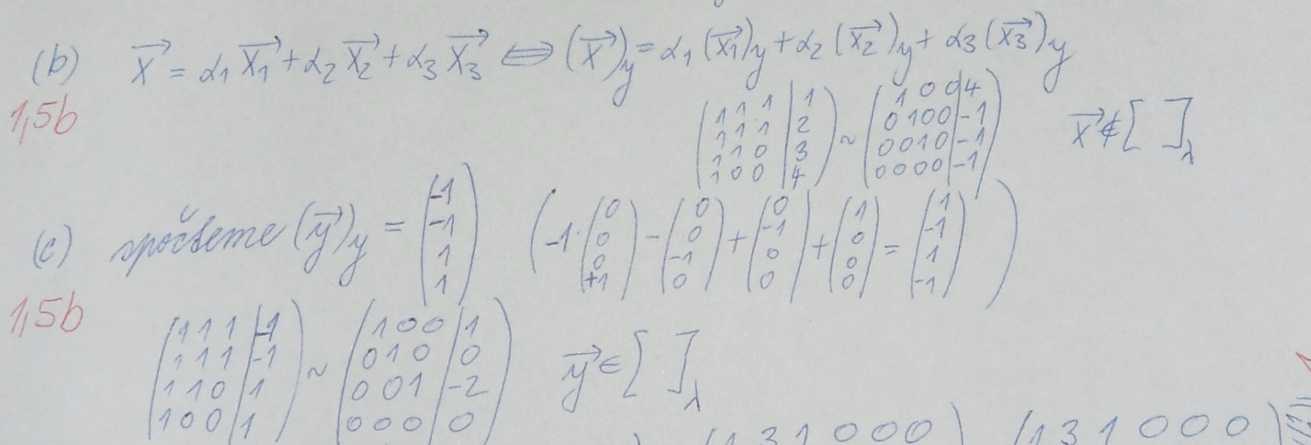 (b) $\vec{x} = \alpha_1 \vec{x_1} + \alpha_2 \vec{x_2} + \alpha_3 \vec{x_3} \Leftrightarrow (\vec{x})_y = \alpha_1 (\vec{x_1})_y + \alpha_2 (\vec{x_2})_y + \alpha_3 (\vec{x_3})_y$
1,5b $\left(\begin{array}{ccc|c} 1 & 1 & 1 & 1 \\ 1 & 1 & 1 & 2 \\ 1 & 1 & 0 & 3 \\ 1 & 0 & 0 & 4 \end{array}\right) \sim \left(\begin{array}{ccc|c} 1 & 0 & 0 & 4 \\ 0 & 1 & 0 0 & -1 \\ 0 & 0 & 1 0 & -1 \\ 0 & 0 & 0 0 & -1 \end{array}\right)$ $\vec{x} \notin [\ ]_\lambda$
(c) spočteme $(\vec{y})_y = \begin{pmatrix} -1 \\ -1 \\ 1 \\ 1 \end{pmatrix}$ $\left( -1 \cdot \begin{pmatrix} 0 \\ 0 \\ 0 \\ +1 \end{pmatrix} - \begin{pmatrix} 0 \\ 0 \\ -1 \\ 0 \end{pmatrix} + \begin{pmatrix} 0 \\ -1 \\ 0 \\ 0 \end{pmatrix} + \begin{pmatrix} 1 \\ 0 \\ 0 \\ 0 \end{pmatrix} = \begin{pmatrix} 1 \\ -1 \\ 1 \\ -1 \end{pmatrix} \right)$
1,5b $\left(\begin{array}{ccc|c} 1 & 1 & 1 & -1 \\ 1 & 1 & 1 & -1 \\ 1 & 1 & 0 & 1 \\ 1 & 0 & 0 & 1 \end{array}\right) \sim \left(\begin{array}{ccc|c} 1 & 0 & 0 & 1 \\ 0 & 1 & 0 & 0 \\ 0 & 0 & 1 & -2 \\ 0 & 0 & 0 & 0 \end{array}\right)$ $\vec{y} \in [\ ]_\lambda$
1 3 1 0 0 0 ) ( 1 3 1 0 0 0 )